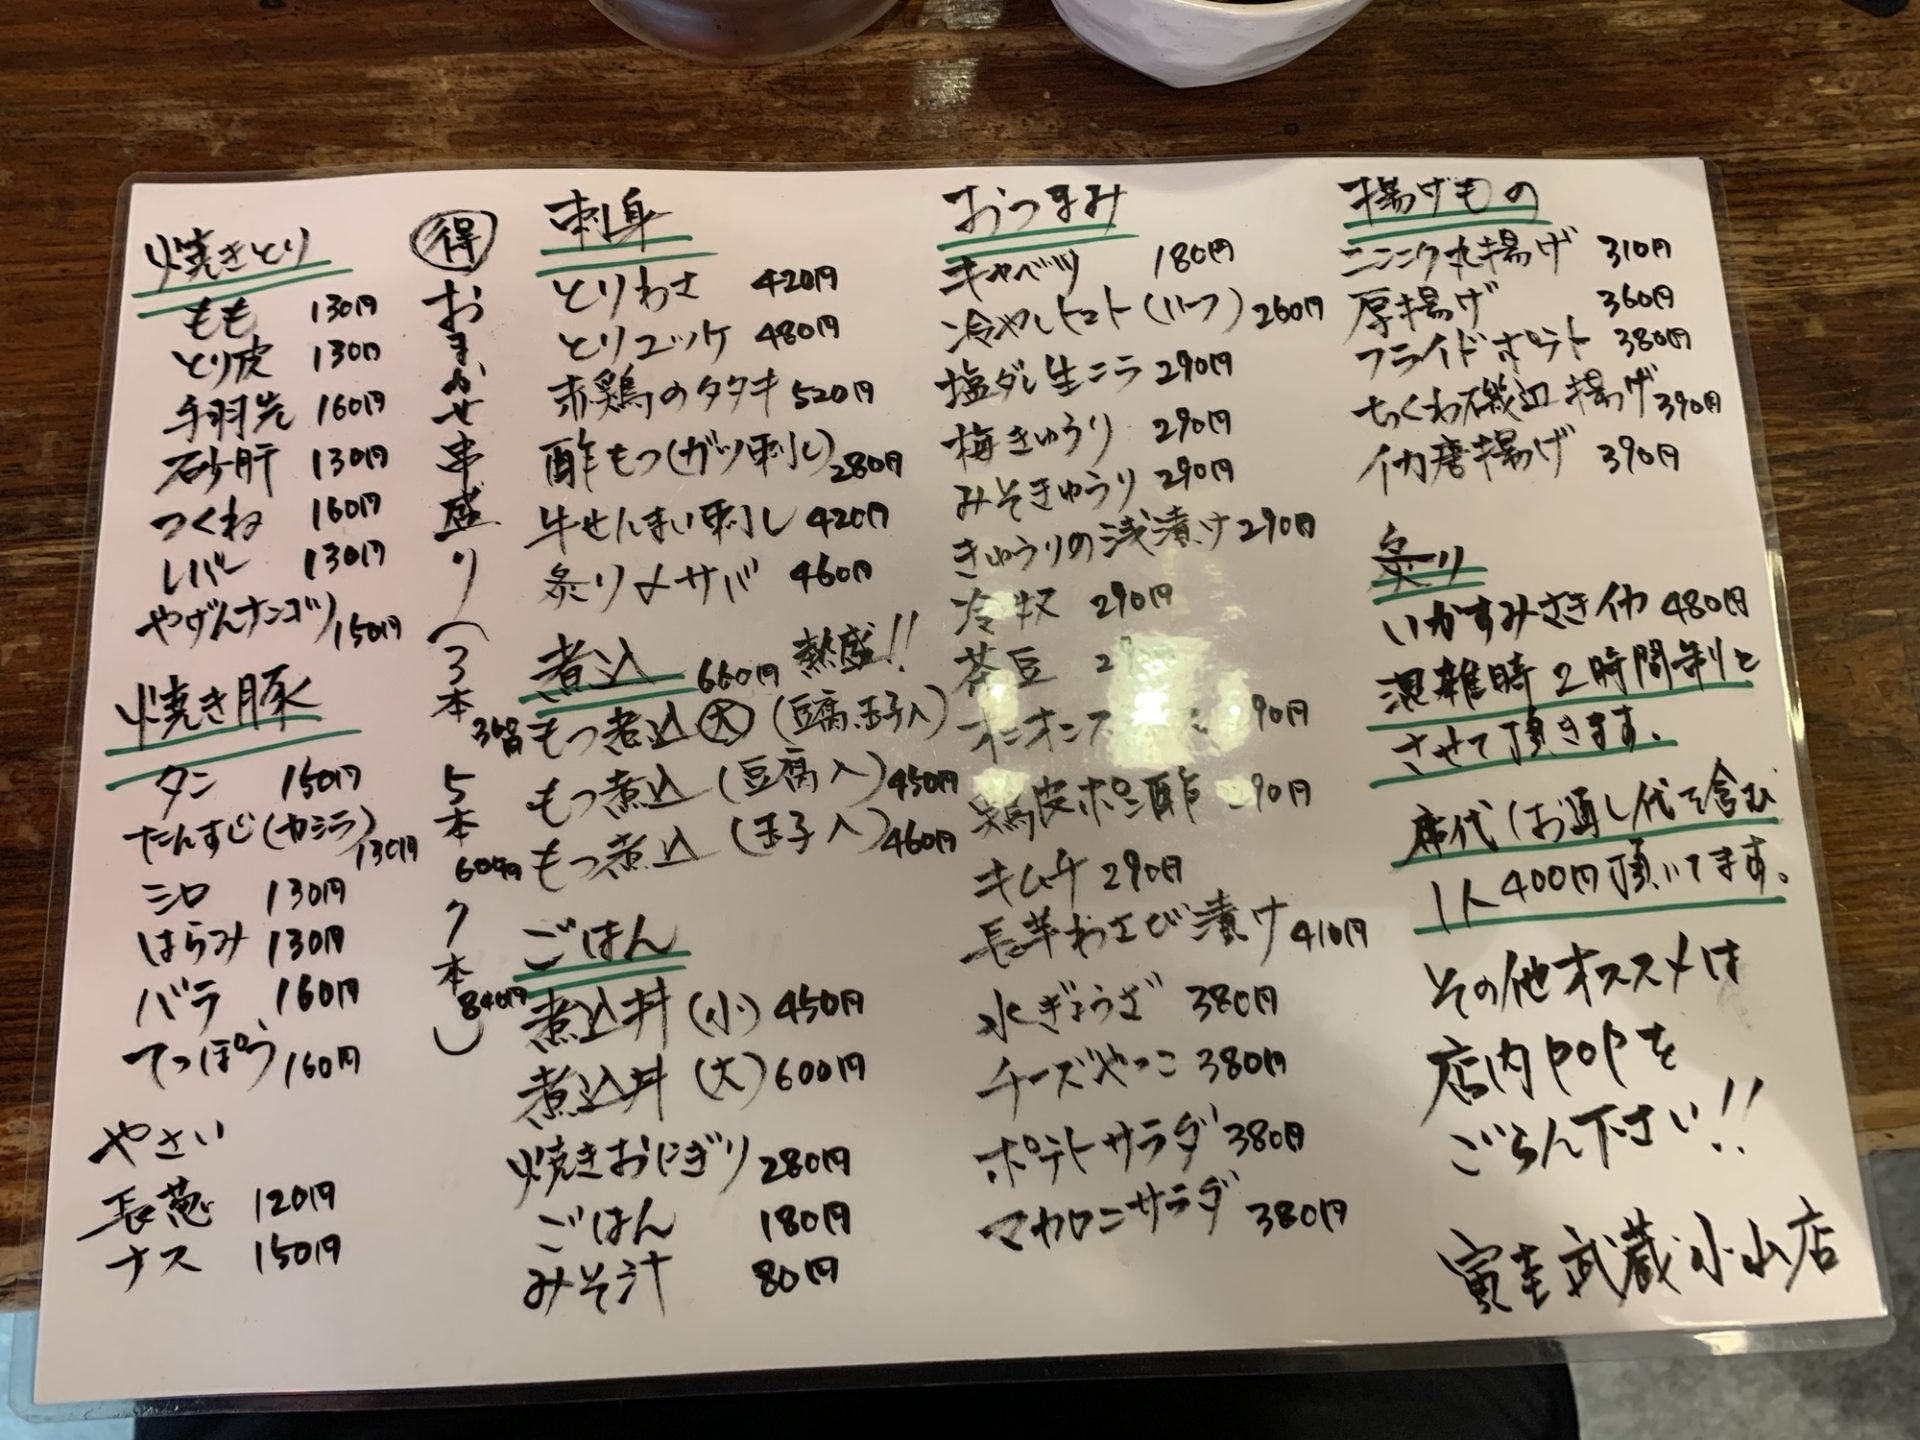 焼きとり
もも 130円
とり皮 130円
手羽先 160円
砂肝 130円
つくね 160円
レバー 130円
やげんナンコツ 150円
焼き豚
タン 150円
たんすじ(カシラ) 130円
シロ 130円
はらみ 130円
バラ 160円
てっぽう 160円
やさい
長葱 120円
ナス 150円
得 おまかせ串盛り(3本 360円 5本 600円 7本 840円)
刺身
とりわさ 420円
とりユッケ 480円
赤鶏のタタキ 520円
酢もつ(ガツ刺し) 280円
牛せんまい刺し 420円
炙り〆サバ 460円
煮込 660円 熱盛!!
もつ煮込 大 (豆腐、玉子入)
もつ煮込 (豆腐入) 450円
もつ煮込 (玉子入) 460円
ごはん
煮込丼 (小) 450円
煮込丼 (大) 600円
焼きおにぎり 280円
ごはん 180円
みそ汁 80円
おつまみ
キャベツ 180円
冷やしトマト (ハーフ) 260円
塩ダレ生ニラ 290円
梅きゅうり 290円
みそきゅうり 290円
きゅうりの浅漬け 290円
冷奴 290円
茶豆
オニオンス
鶏皮ポン酢 290円
キムチ 290円
長芋わさび漬け 410円
水ぎょうざ 380円
チーズやっこ 380円
ポテトサラダ 380円
マカロニサラダ 380円
揚げもの
ニンニク丸揚げ 310円
厚揚げ 360円
フライドポテト 380円
ちくわ磯辺揚げ 390円
イカ唐揚げ 390円
炙り
いかすみさきイカ 480円
混雑時2時間制と
させて頂きます。
席代(お通し代を含む
1人400円頂いてます。
その他オススメは
店内POPを
ごらん下さい!!
武蔵小山店